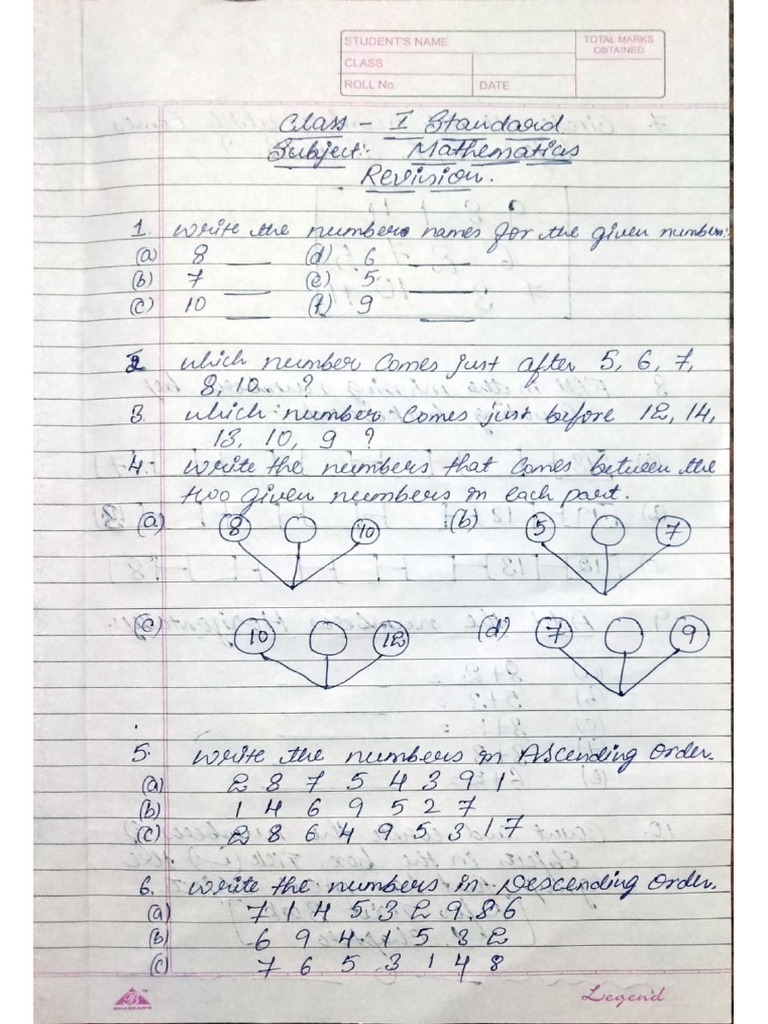 STUDENT'S NAME
TOTAL MARKS OBTAINED
CLASS
ROLL No. DATE
Class - I Standard
Subject: Mathematics
Revision.
1. Write the numbers names for the given numbers:
(a) 8 ___ (d) 6 ___
(b) 7 ___ (e) 5 ___
(c) 10 ___ (f) 9 ___
2 which number comes just after 5, 6, 7,
8, 10. ?
3. which number comes just before 12, 14,
13, 10, 9 ?
4. write the numbers that comes between the
two given numbers in each part.
(a) 8 10 (b) 5 7
(c) 10 12 (d) 7 9
5. write the numbers in Ascending order.
(a) 2 8 7 5 4 3 9 1
(b) 1 4 6 9 5 2 7
(c) 2 8 6 4 9 5 3 1 7
6. write the numbers in Descending order.
(a) 7 1 4 5 3 2 9 8 6
(b) 6 9 4 1 5 3 2
(c) 7 6 5 3 1 4 8
Legend